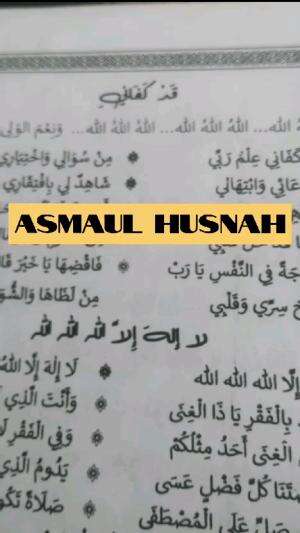 قَدْ كَفَانِي
اللهُ الله... اللهُ اللهُ الله... وَنِعْمَ
كَفَانِي عِلْمُ رَبِّي ۞ مِنْ سُؤَالِي وَاخْتِيَارِي
وَابْتِهَالِي ۞ شَاهِدٌ لِي بِافْتِقَارِي
ASMAUL HUSNAH
فِي النَّفْسِ يَا رَبّ ۞ فَاقْضِهَا يَا خَيْرَ
سِرِّي وَقَلْبِي مِنْ لَظَاهَا
لا إله إلاَّ لله لله لله
الله الله الله ۞ لَا إِلٰهَ إِلَّا
بِالْفَقْرِ يَا ذَا الْغِنَى ۞ وَأَنْتَ الَّذِي
الْغِنَى أَحَدٌ مِثْلُكُمْ ۞ وَفِي الْفَقْرِ
كُلَّ فَضْلٍ عَسَى ۞ يَدُومُ الَّذِي
صَلِّ عَلَى الْمُصْطَفَى ۞ صَلَاةً